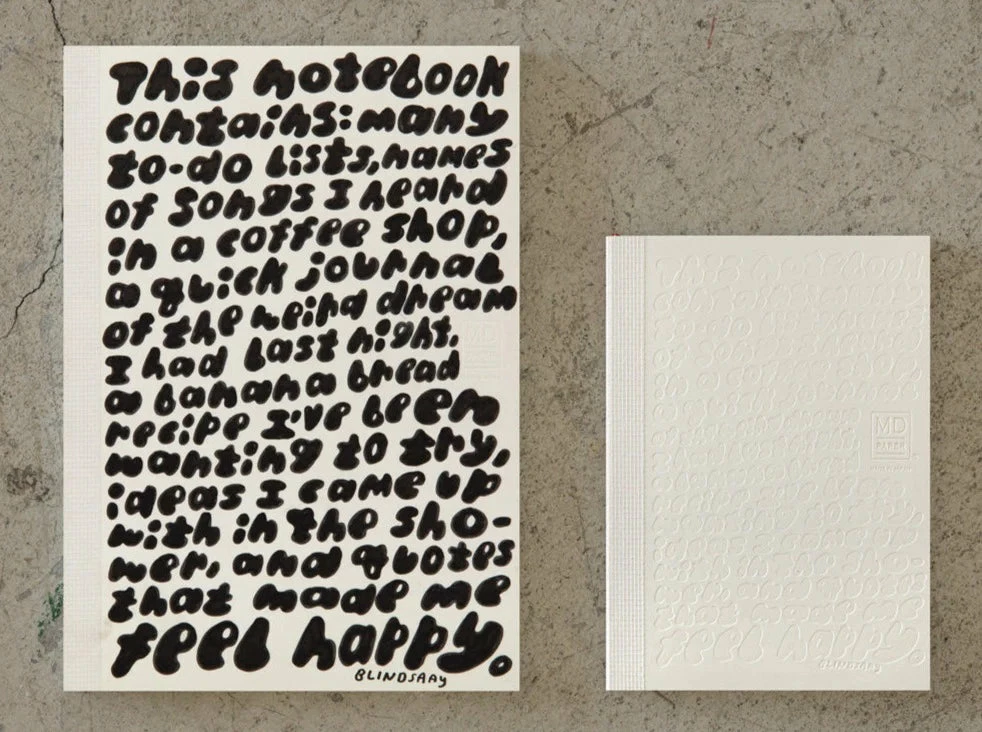 This notebook
contains: many
to-do lists, names
of songs I heard
in a coffee shop,
a quick journal
of the weird dream
I had last night,
a banana bread
recipe I've been
wanting to try,
ideas I came up
with in the sho-
wer, and quotes
that made me
feel happy.
BLINDSAAy
MD
PAPER
This notebook
contains: many
to-do lists, names
of songs I heard
in a coffee shop,
a quick journal
of the weird dream
I had last night,
a banana bread
recipe I've been
wanting to try,
ideas I came up
with in the sho-
wer, and quotes
that made me
feel happy.
MD
PAPER
BLINDSAAy